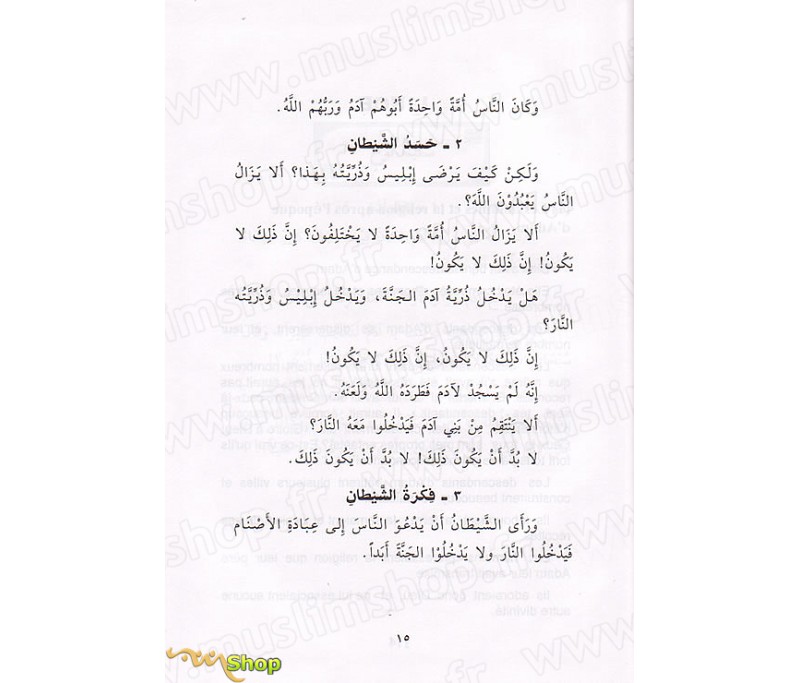 وَكَانَ النَّاسُ أُمَّةً وَاحِدَةً أَبُوهُمْ آدَمُ وَرَبُّهُمْ اللَّهُ.
٢ - حَسَدُ الشَّيْطانِ
وَلَكِنْ كَيْفَ يَرْضَى إِبْلِيسُ وَذُرِّيَّتُهُ بِهَذا؟ أَلا يَزَالُ
النَّاسُ يَعْبُدُوْنَ اللَّهَ؟.
أَلا يَزَالُ النَّاسُ أُمَّةً وَاحِدَةً لا يَخْتَلِفُونَ؟ إِنَّ ذَلِكَ لا
يَكُونُ! إِنَّ ذَلِكَ لا يَكُونُ!
هَلْ يَدْخُلُ ذُرِّيَّةُ آدَمَ الجَنَّةَ، وَيَدْخُلُ إِبْلِيْسُ وَذُرِّيَّتُه
النَّارَ؟
إِنَّ ذَلِكَ لا يَكُونُ، إِنَّ ذَلِكَ لا يَكُونُ!
إِنَّهُ لَمْ يَسْجُدْ لآدَمَ فَطَرَدَهُ اللَّهُ وَلَعَنَهُ.
أَلا يَنْتَقِمُ مِنْ بَنِي آدَمَ فَيَدْخُلُوا مَعَهُ النَّارَ؟
لا بُدَّ أَنْ يَكُونَ ذَلِكَ! لا بُدَّ أَن يَكُونَ ذَلِكَ.
٣ - فِكْرَةُ الشَّيْطانِ
وَرَأَى الشَّيْطَانُ أَنْ يَدْعُوَ النَّاسَ إِلى عِبَادَةِ الأَصْنَام
فَيَدْخُلُوا النَّارَ ولا يَدْخُلُوْا الجَنَّةَ أَبَداً.
١٥
Shop
www.muslimshop.fr